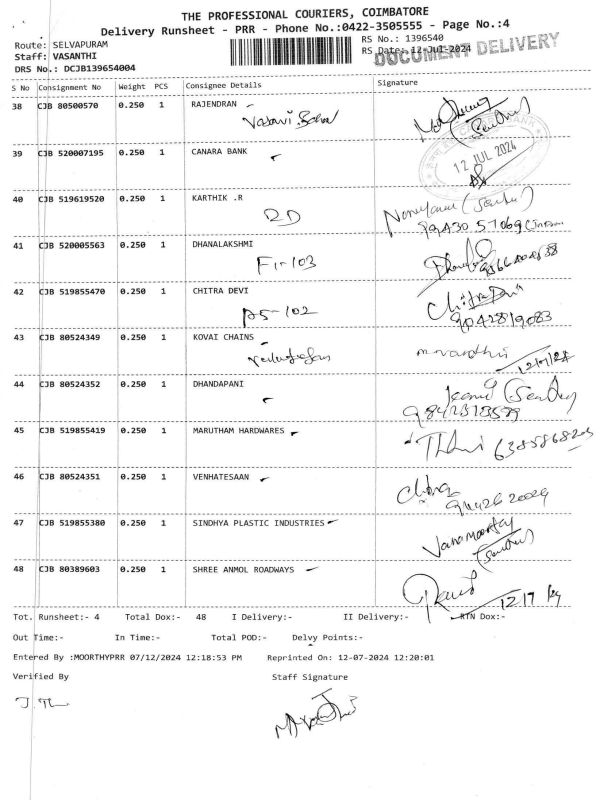 THE PROFESSIONAL COURIERS, COIMBATORE
Delivery Runsheet - PRR - Phone No.:0422-3505555 - Page No.:4
Route: SELVAPURAM
RS No.: 1396540
Staff: VASANTHI
RS Date: 12-Jul-2024
DOCUMENT DELIVERY
DRS No.: DCJB139654004
S No Consignment No Weight PCS Consignee Details Signature
38 CJB 80500570 0.250 1 RAJENDRAN
39 CJB 520007195 0.250 1 CANARA BANK
12 JUL 2024
40 CJB 519619520 0.250 1 KARTHIK .R
RD
41 CJB 520005563 0.250 1 DHANALAKSHMI
F1-103
42 CJB 519855470 0.250 1 CHITRA DEVI
A5-102 Chitra Devi
9042819083
43 CJB 80524349 0.250 1 KOVAI CHAINS
12/7/24
44 CJB 80524352 0.250 1 DHANDAPANI
45 CJB 519855419 0.250 1 MARUTHAM HARDWARES
46 CJB 80524351 0.250 1 VENHATESAAN
Chitra
47 CJB 519855380 0.250 1 SINDHYA PLASTIC INDUSTRIES
48 CJB 80389603 0.250 1 SHREE ANMOL ROADWAYS
Tot. Runsheet:- 4 Total Dox:- 48 I Delivery:- II Delivery:- RTN Dox:-
Out Time:- In Time:- Total POD:- Delvy Points:-
Entered By :MOORTHYPRR 07/12/2024 12:18:53 PM Reprinted On: 12-07-2024 12:20:01
Verified By Staff Signature